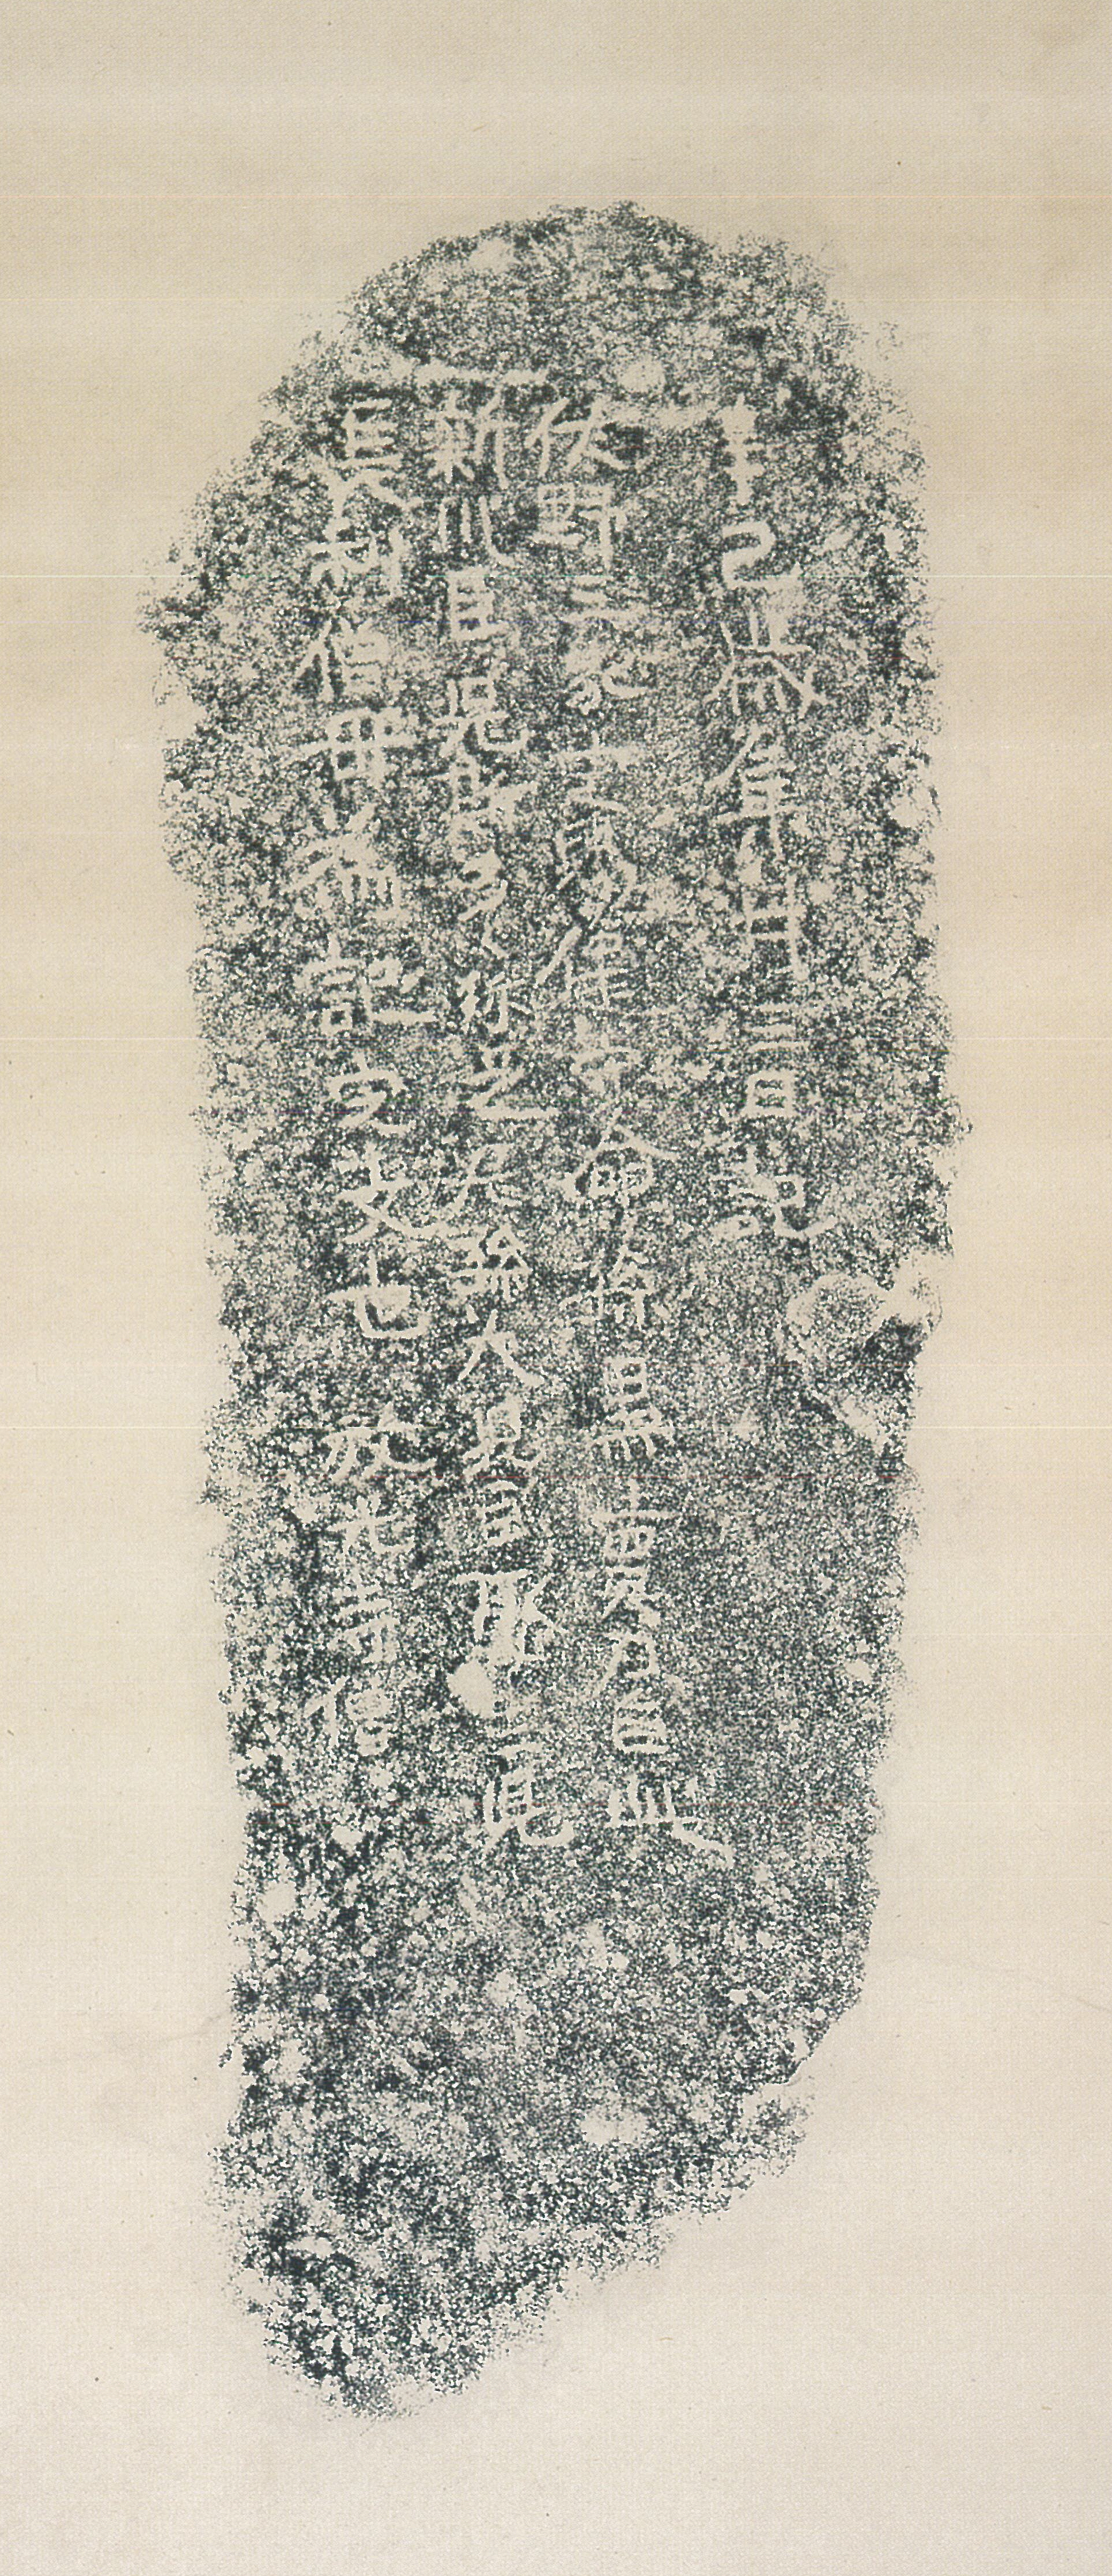 辛己歳集月三日記
佐野三家定賜健守命孫黒賣刀自此
新川臣児斯多々弥足尼孫大児臣娶生児
長利僧母為記定文也 放光寺僧